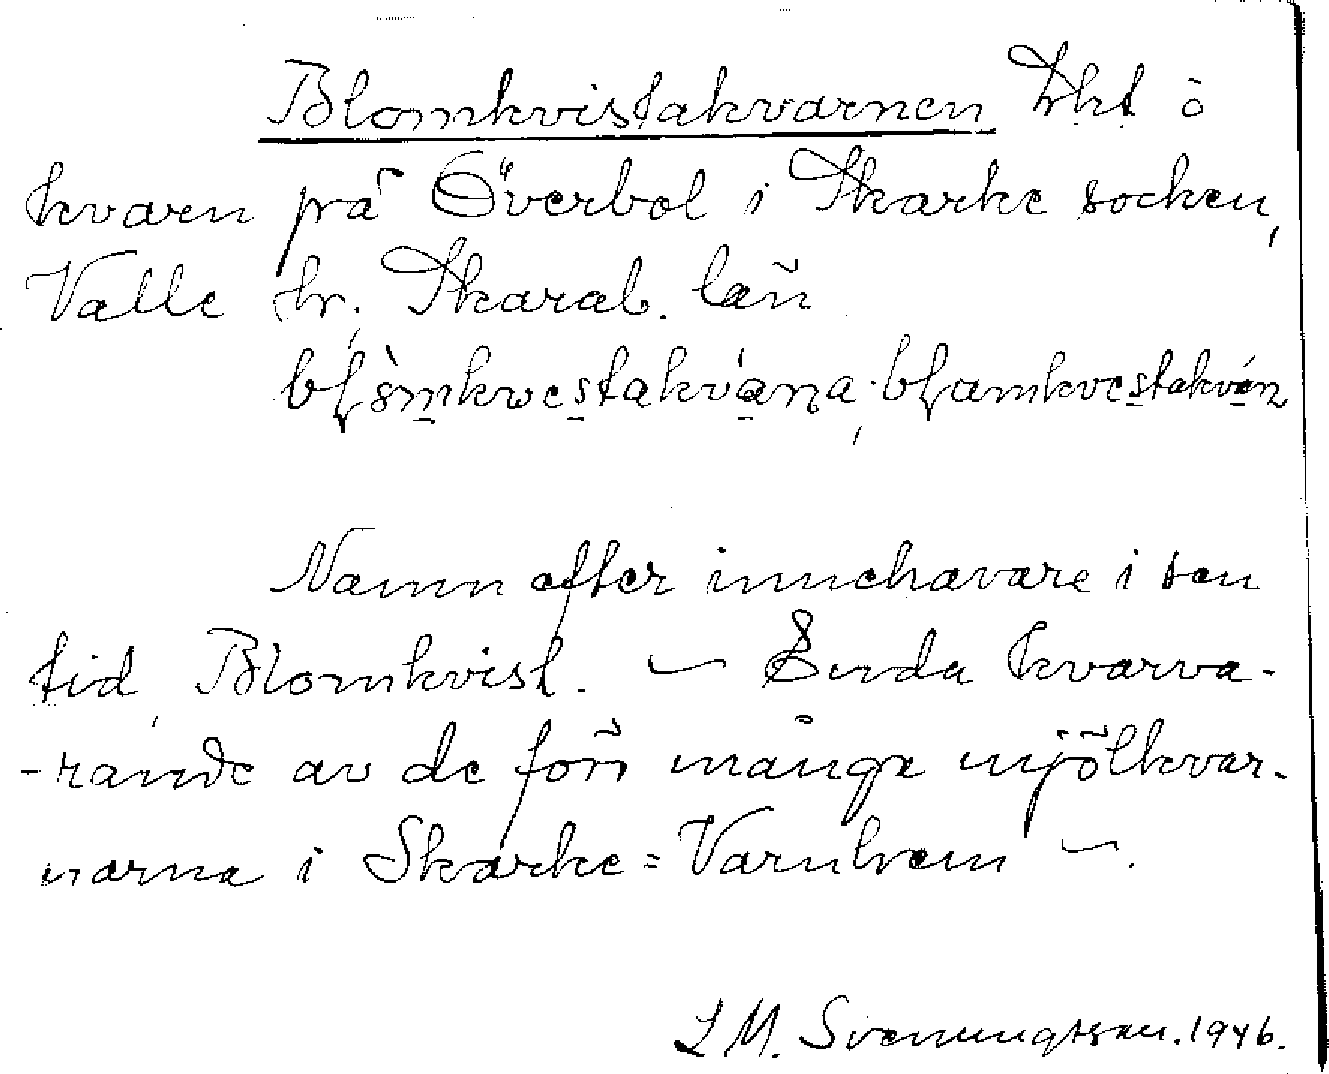 Blomkvistakvarnen
kvarn på Överbol i Skarke socken,
Valle hr. Skarab. län
Namn efter innehavare i sen
tid, Blomkvist. — Enda kvarva-
-rande av de förr många mjölkvar-
narna i Skarke=Varnhem —.
L M. Svenungsson. 1946.